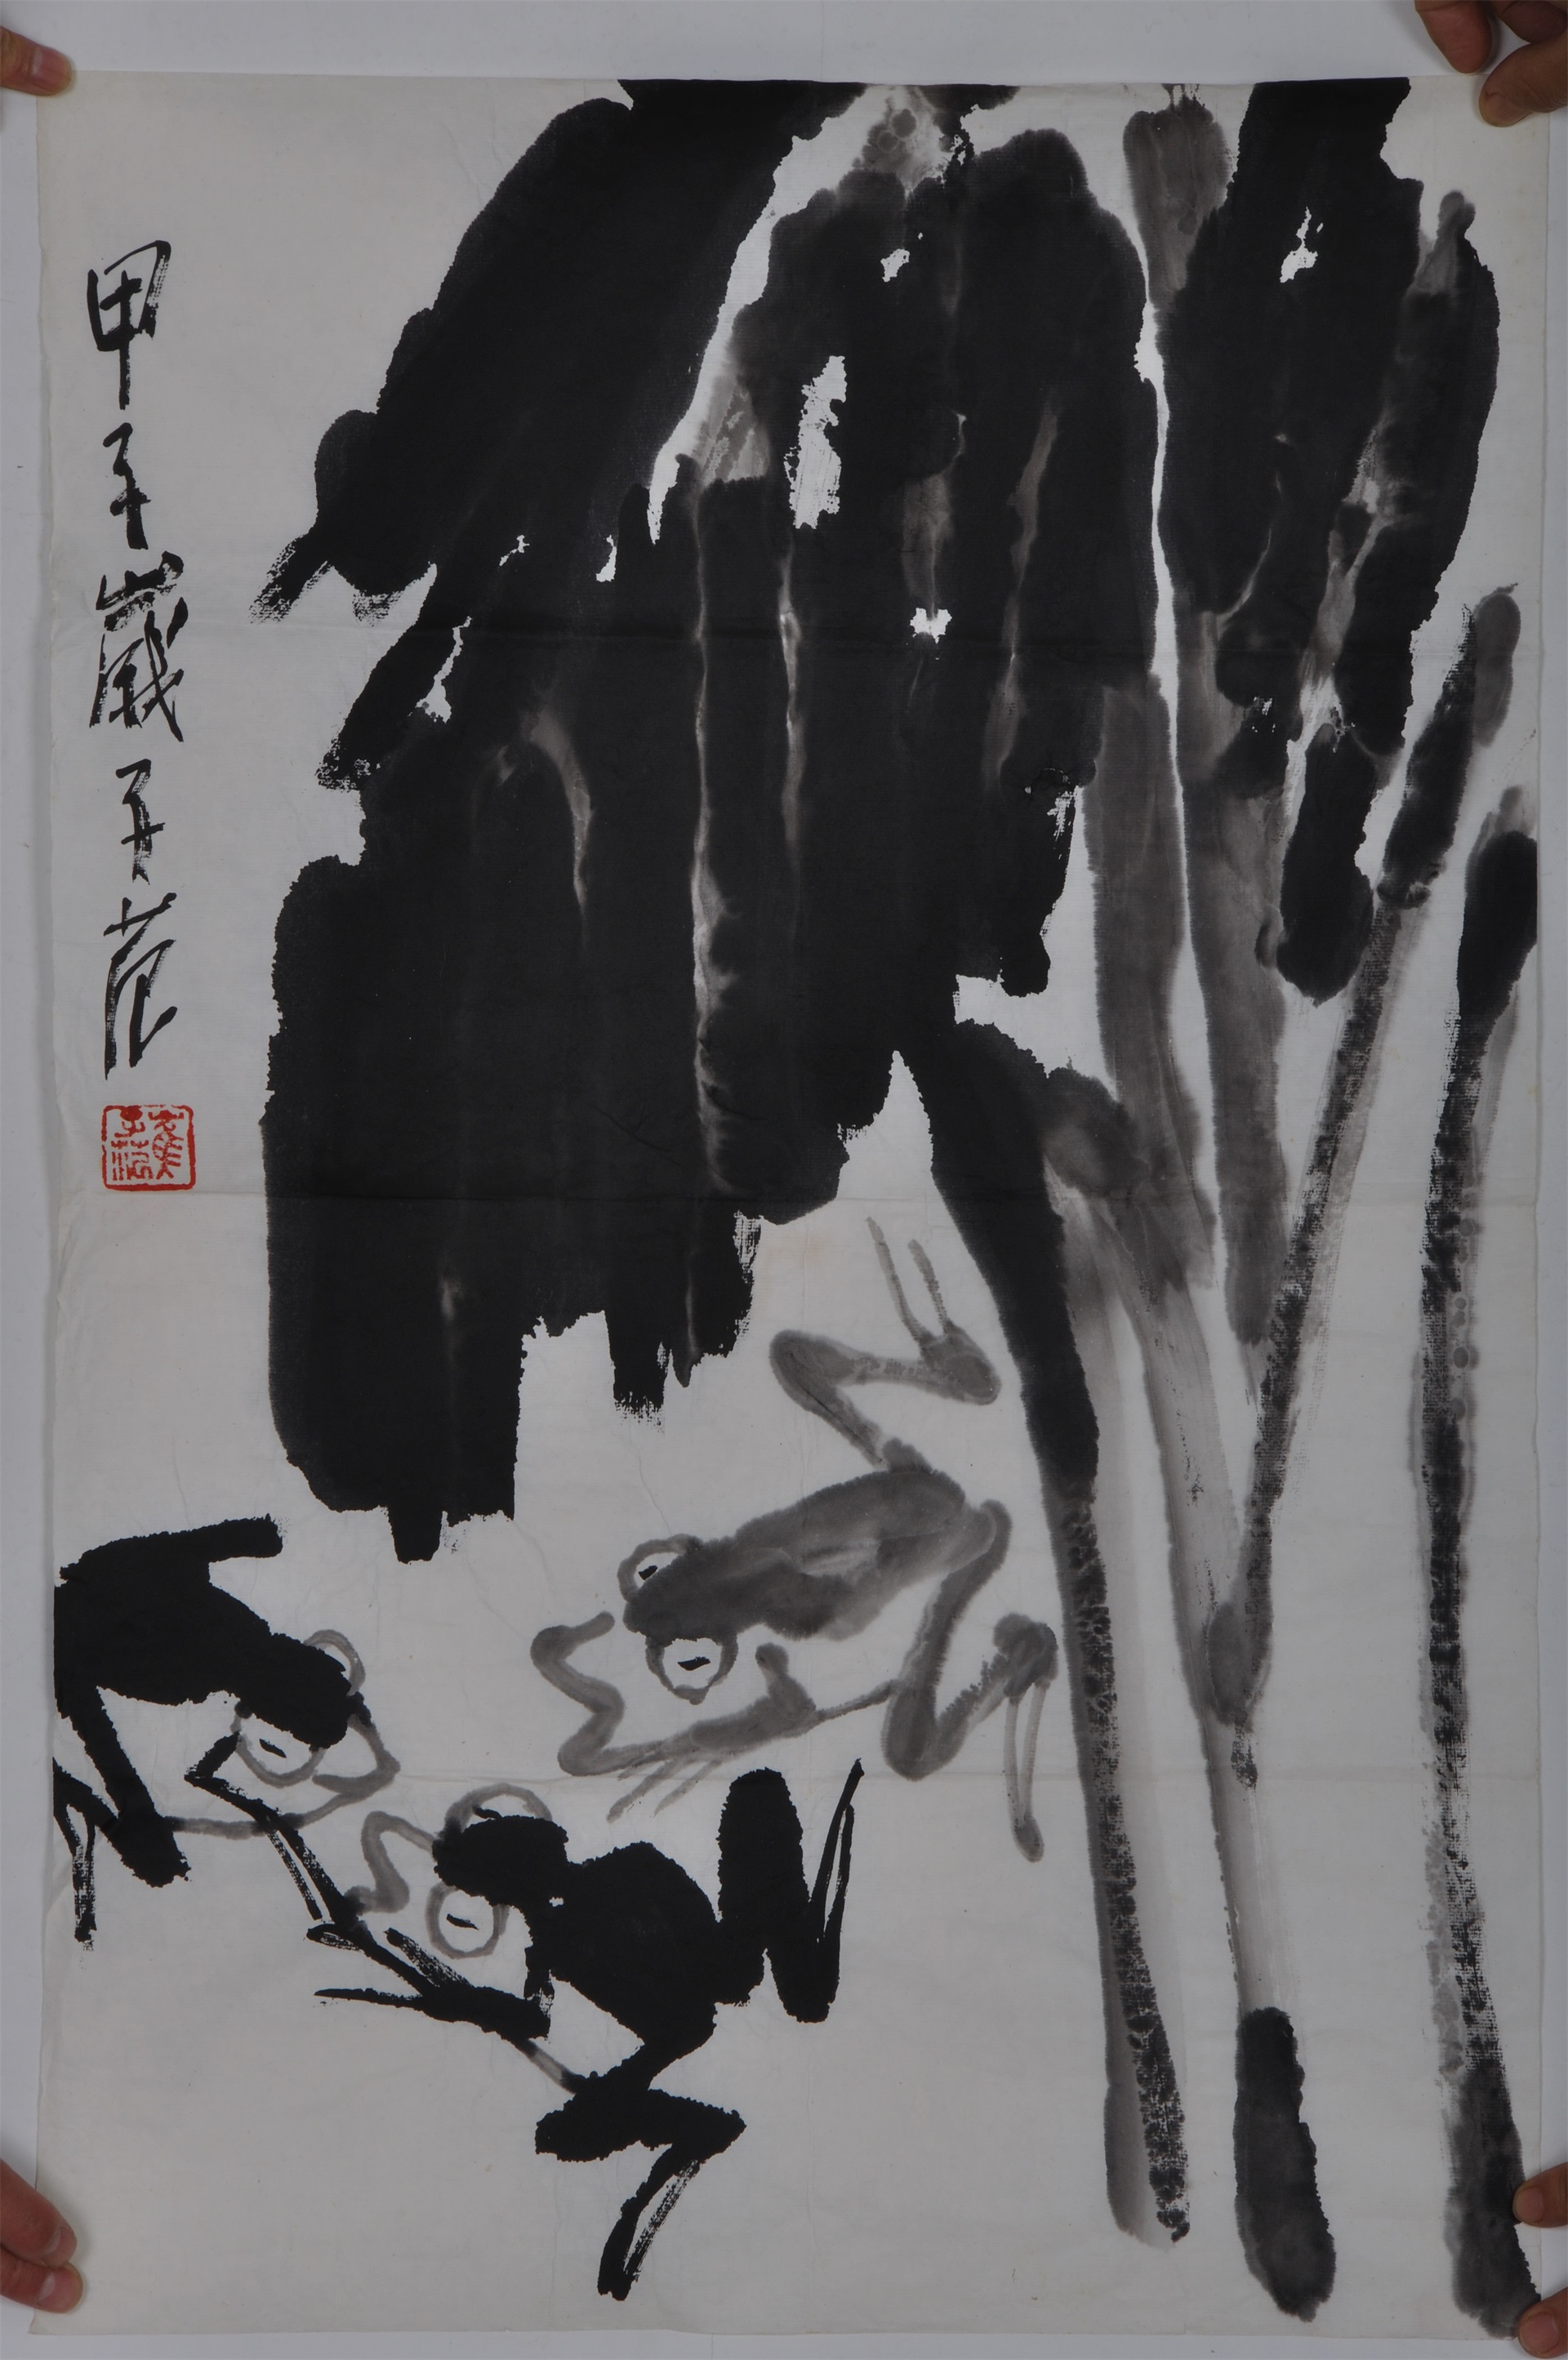 甲子歲子范